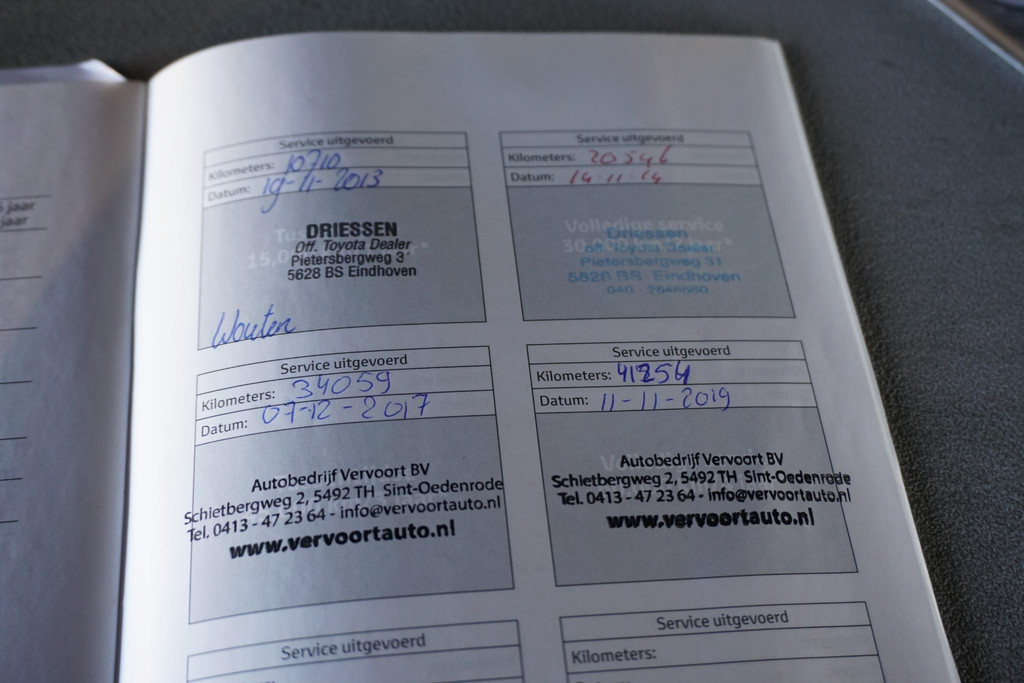 jaar
jaar
Service uitgevoerd
Kilometers: 10710
Datum: 19-11-2013
DRIESSEN
Off. Toyota Dealer
Pietersbergweg 3
5628 BS Eindhoven
Wouter
Service uitgevoerd
Kilometers: 20546
Datum: 14-11-14
Volledige service
Driessen
off. Toyota Dealer
Pietersbergweg 31
5628 BS Eindhoven
Service uitgevoerd
Kilometers: 34059
Datum: 07-12-2017
Autobedrijf Vervoort BV
Schietbergweg 2, 5492 TH Sint-Oedenrode
Tel. 0413 - 47 23 64 - info@vervoortauto.nl
www.vervoortauto.nl
Service uitgevoerd
Kilometers: 41254
Datum: 11-11-2019
Autobedrijf Vervoort BV
Schietbergweg 2, 5492 TH Sint-Oedenrode
Tel. 0413 - 47 23 64 - info@vervoortauto.nl
www.vervoortauto.nl
Service uitgevoerd
Service uitgevoerd
Kilometers: